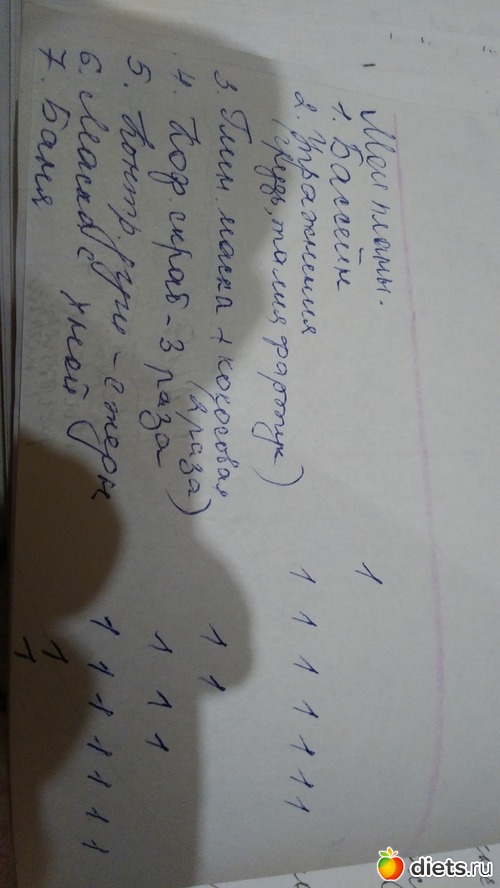 Мои планы.
1. Бассейн 1
2. Упражнения
(грудь, талия, фартук) 1 1 1 1 1 1
3. Глин. маска + кокосовая
(2 раза) 1 1
4. Коф. скраб - 3 раза 1 1 1
5. Контр. душ - ежедн 1 1 1 1 1 1
6. Маска с хной 1
7. Баня 1
diets.ru